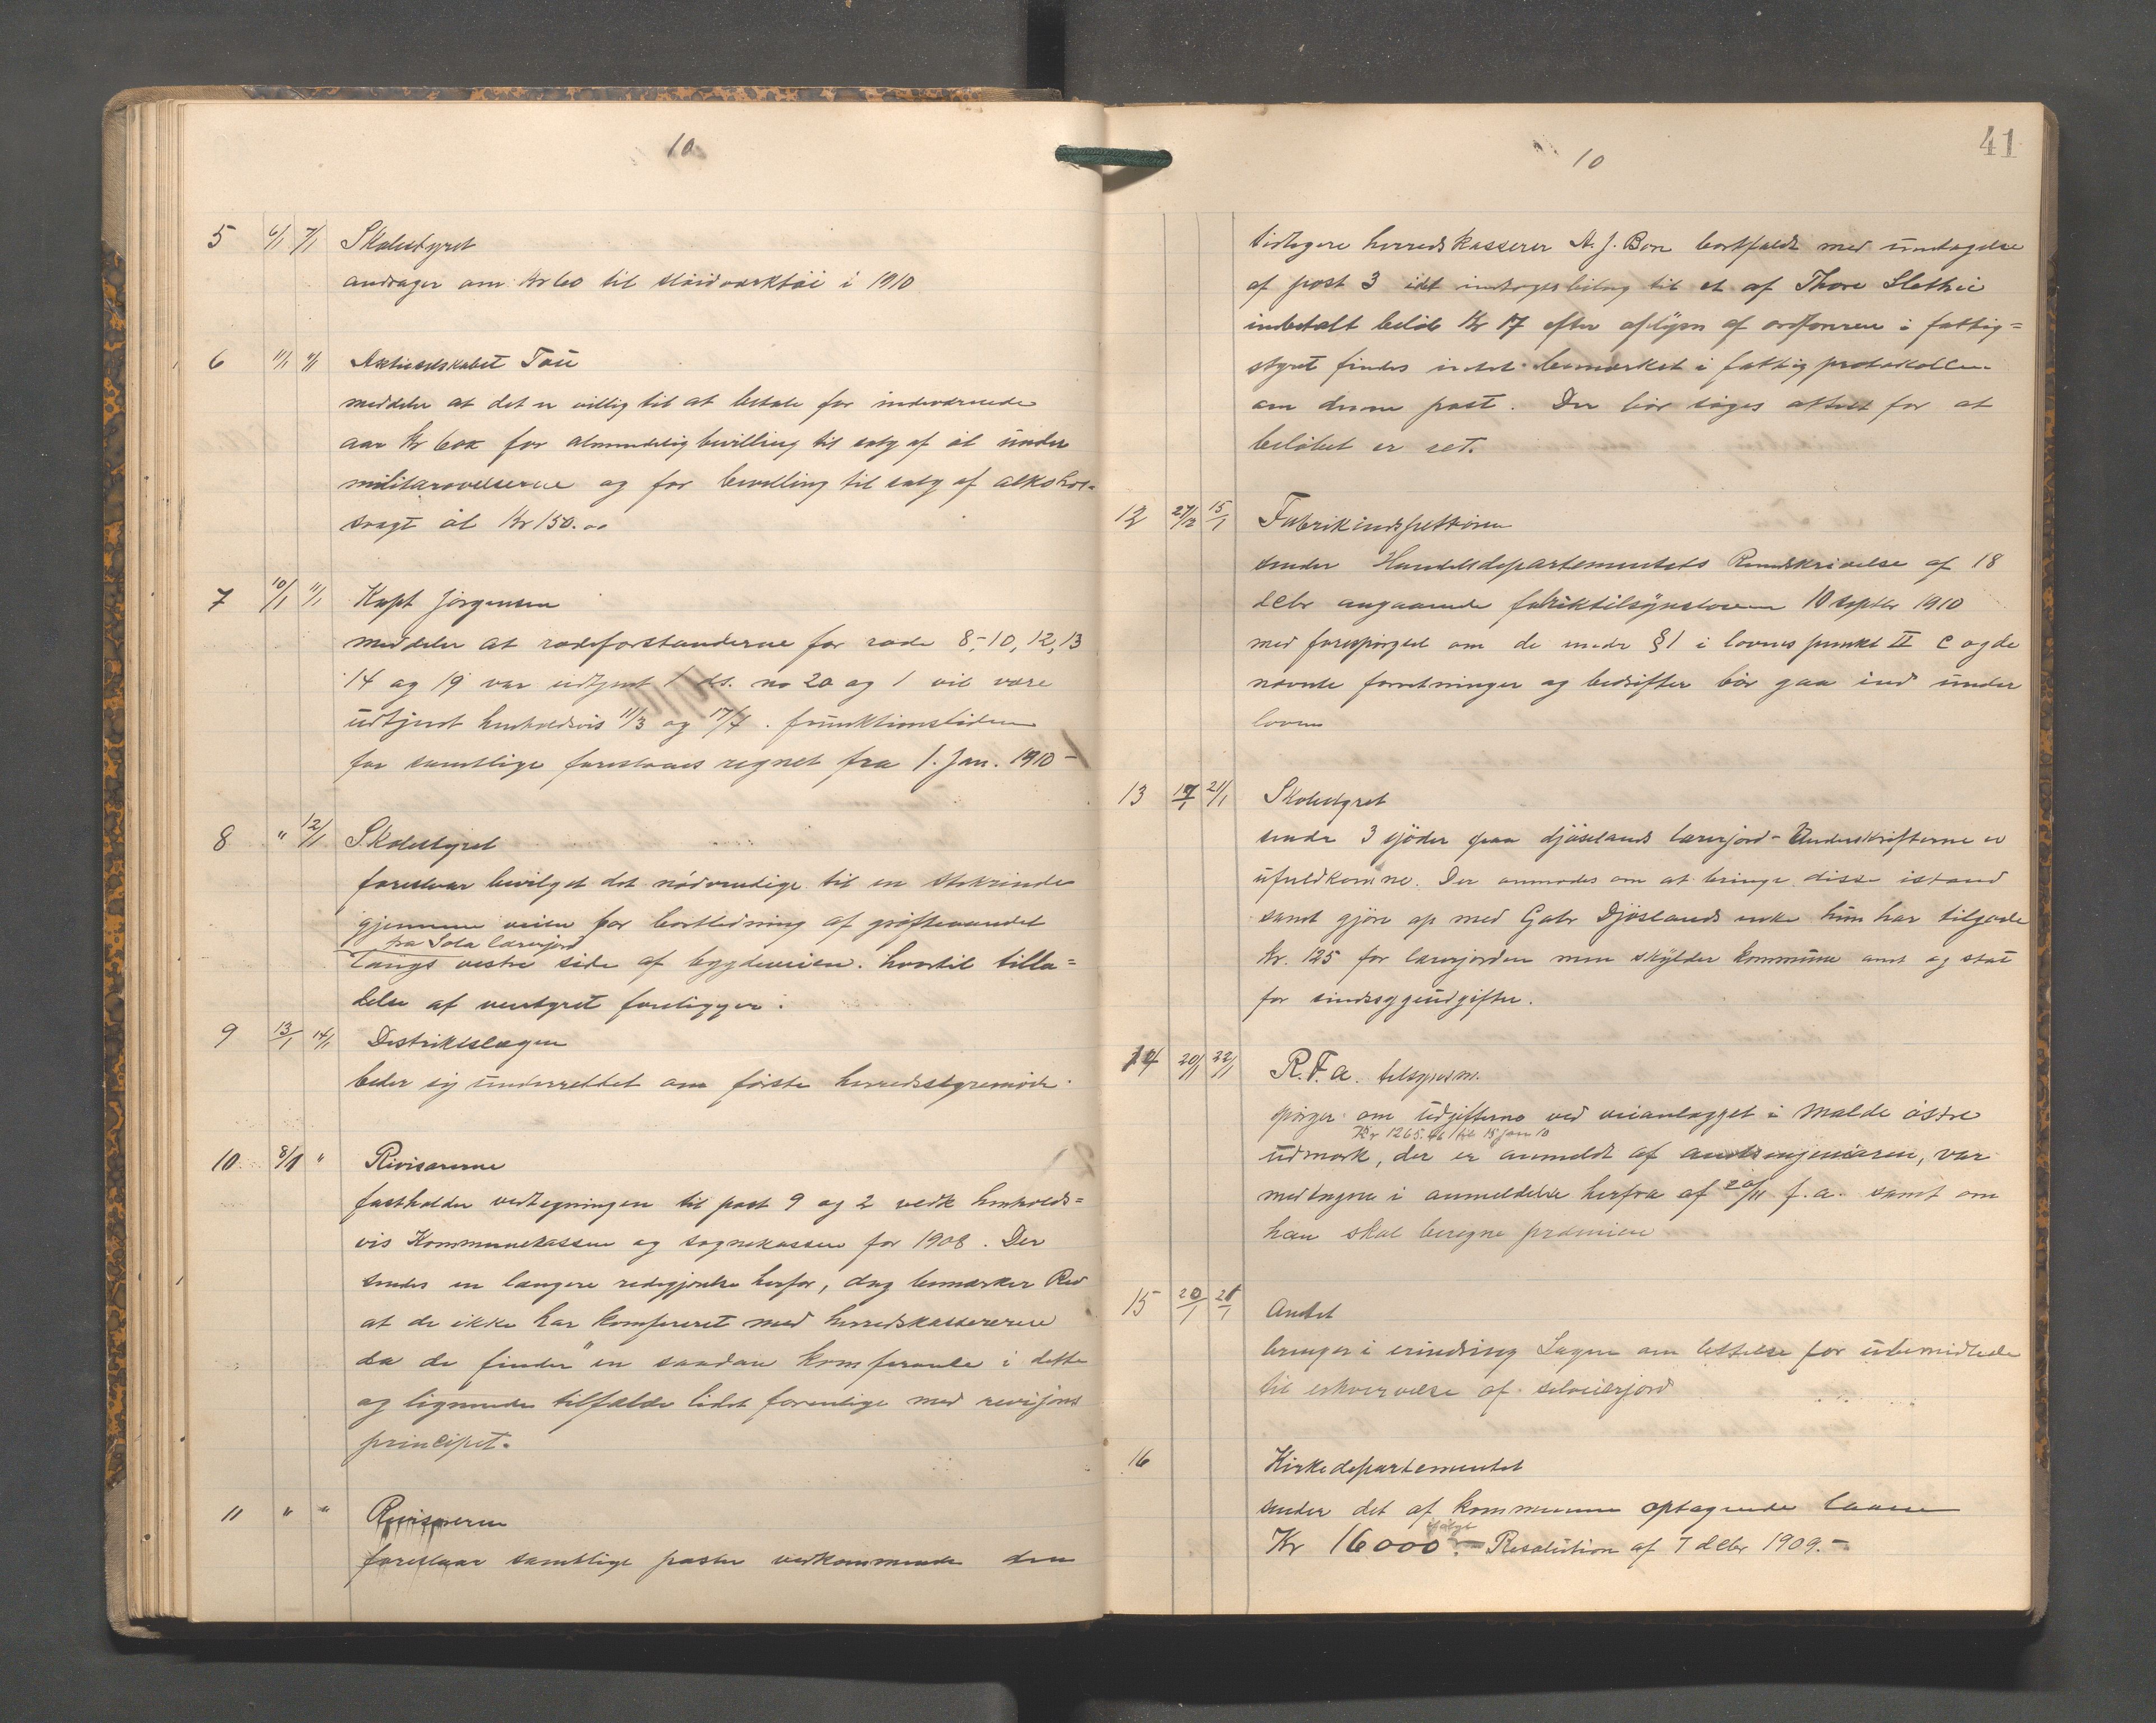 10
5 6/1 7/1 Skolestyret
andrager om Kr 60 til sløidverktøi i 1910
6 11/1 11/1 Aktieselskabet Tou
meddeler at det er villig til at betale for indeværende
aar Kr 600 for almindelig bevilling til salg af øl under
militærøvelserne og for bevilling til salg af alkohol-
svagt øl Kr 150.00
7 10/1 11/1 Kapt Jørgensen
meddeler at rodeforstanderne for rode 8-10, 12, 13
14 og 19 var udtjent 1 ds. no 20 og 1 vil være
udtjent henholdsvis 11/3 og 17/4. funktionstiden
for samtlige foreslaaes regnet fra 1. Jan. 1910 -
8 " 12/1 Skolestyret
foreslaar bevilget det nødvendige til en stokrinde
gjennem veien for bortledning af grøftevandet
fra Sola lærerjord
langs vestre side af bygdeveien. hvortil tilla=
delse af veistyret foreligger.
9 13/1 14/1 Distriktslægen
beder sig underrettet om første herredsstyremøde.
10 8/1 " Revisorerne
fastholder vedtegningen til post 9 og 2 vedk henholds=
vis Kommunekassen og sognekassen for 1908. Der
sendes en længere redegjørelse herfor, dog bemærker Rev
at de ikke har konfereret med herredskassereren
da de finder "en saadan konferanse i dette
og lignende tilfælde lidet forenlige med revisjons
principet.
11 " " Revisorerne
foreslaar samtlige poster vedkommende den
41
10
tidligere herredskasserer A. J. Bore bortfaldt med undtagelse
af post 3 idet indtægtsbilag til et af Thore
indbetalt beløb Kr 17 efter oplysn af ordføreren i fattig=
styret findes intet bemærket i fattigprotokollen
om denne post. Der bør søges attest for at
beløbet er ret.
12 27/12 15/1 Fabrikinspektionen
sender Handelsdepartementets Rundskrivelse af 18
debr angaaende fabriktilsynsloven 10 septbr 1910
med forespørgsel om de under § 1 i lovens punkt II c og de
nævnte forretninger og bedrifter bør gaa ind under
loven
13 19/1 21/1 Skolestyret
sender 3 sjøder paa Djøselands lærerjord - Underskrifterne er
ufuldkomne. Der anmodes om at bringe disse istand
samt gjøre op med Gabr Djøslands enke hun har tilgode
Kr. 125 for lærerjorden men skylder kommune amt og stat
for sindssygeudgifter.
14 20/1 22/1 R. F. A.
spørger om udgifterne ved veianlægget i Malde østre
Kr 1265.46 til 15 jan 10
udmark, der er anmeldt af amtsingeniøren, var
medtagne i anmeldelse herfra af 20/11 f. a. samt om
han skal beregne præmien
15 20/1 21/1 Amtet
bringer i erindring Lagen om lettelse for ubemidlede
til erhvervelse af selveierjord
16 Kirkedepartementet
sender det af kommunen optagende laan
ifølge
Kr 16000 - Resolution af 7 debr 1909. -